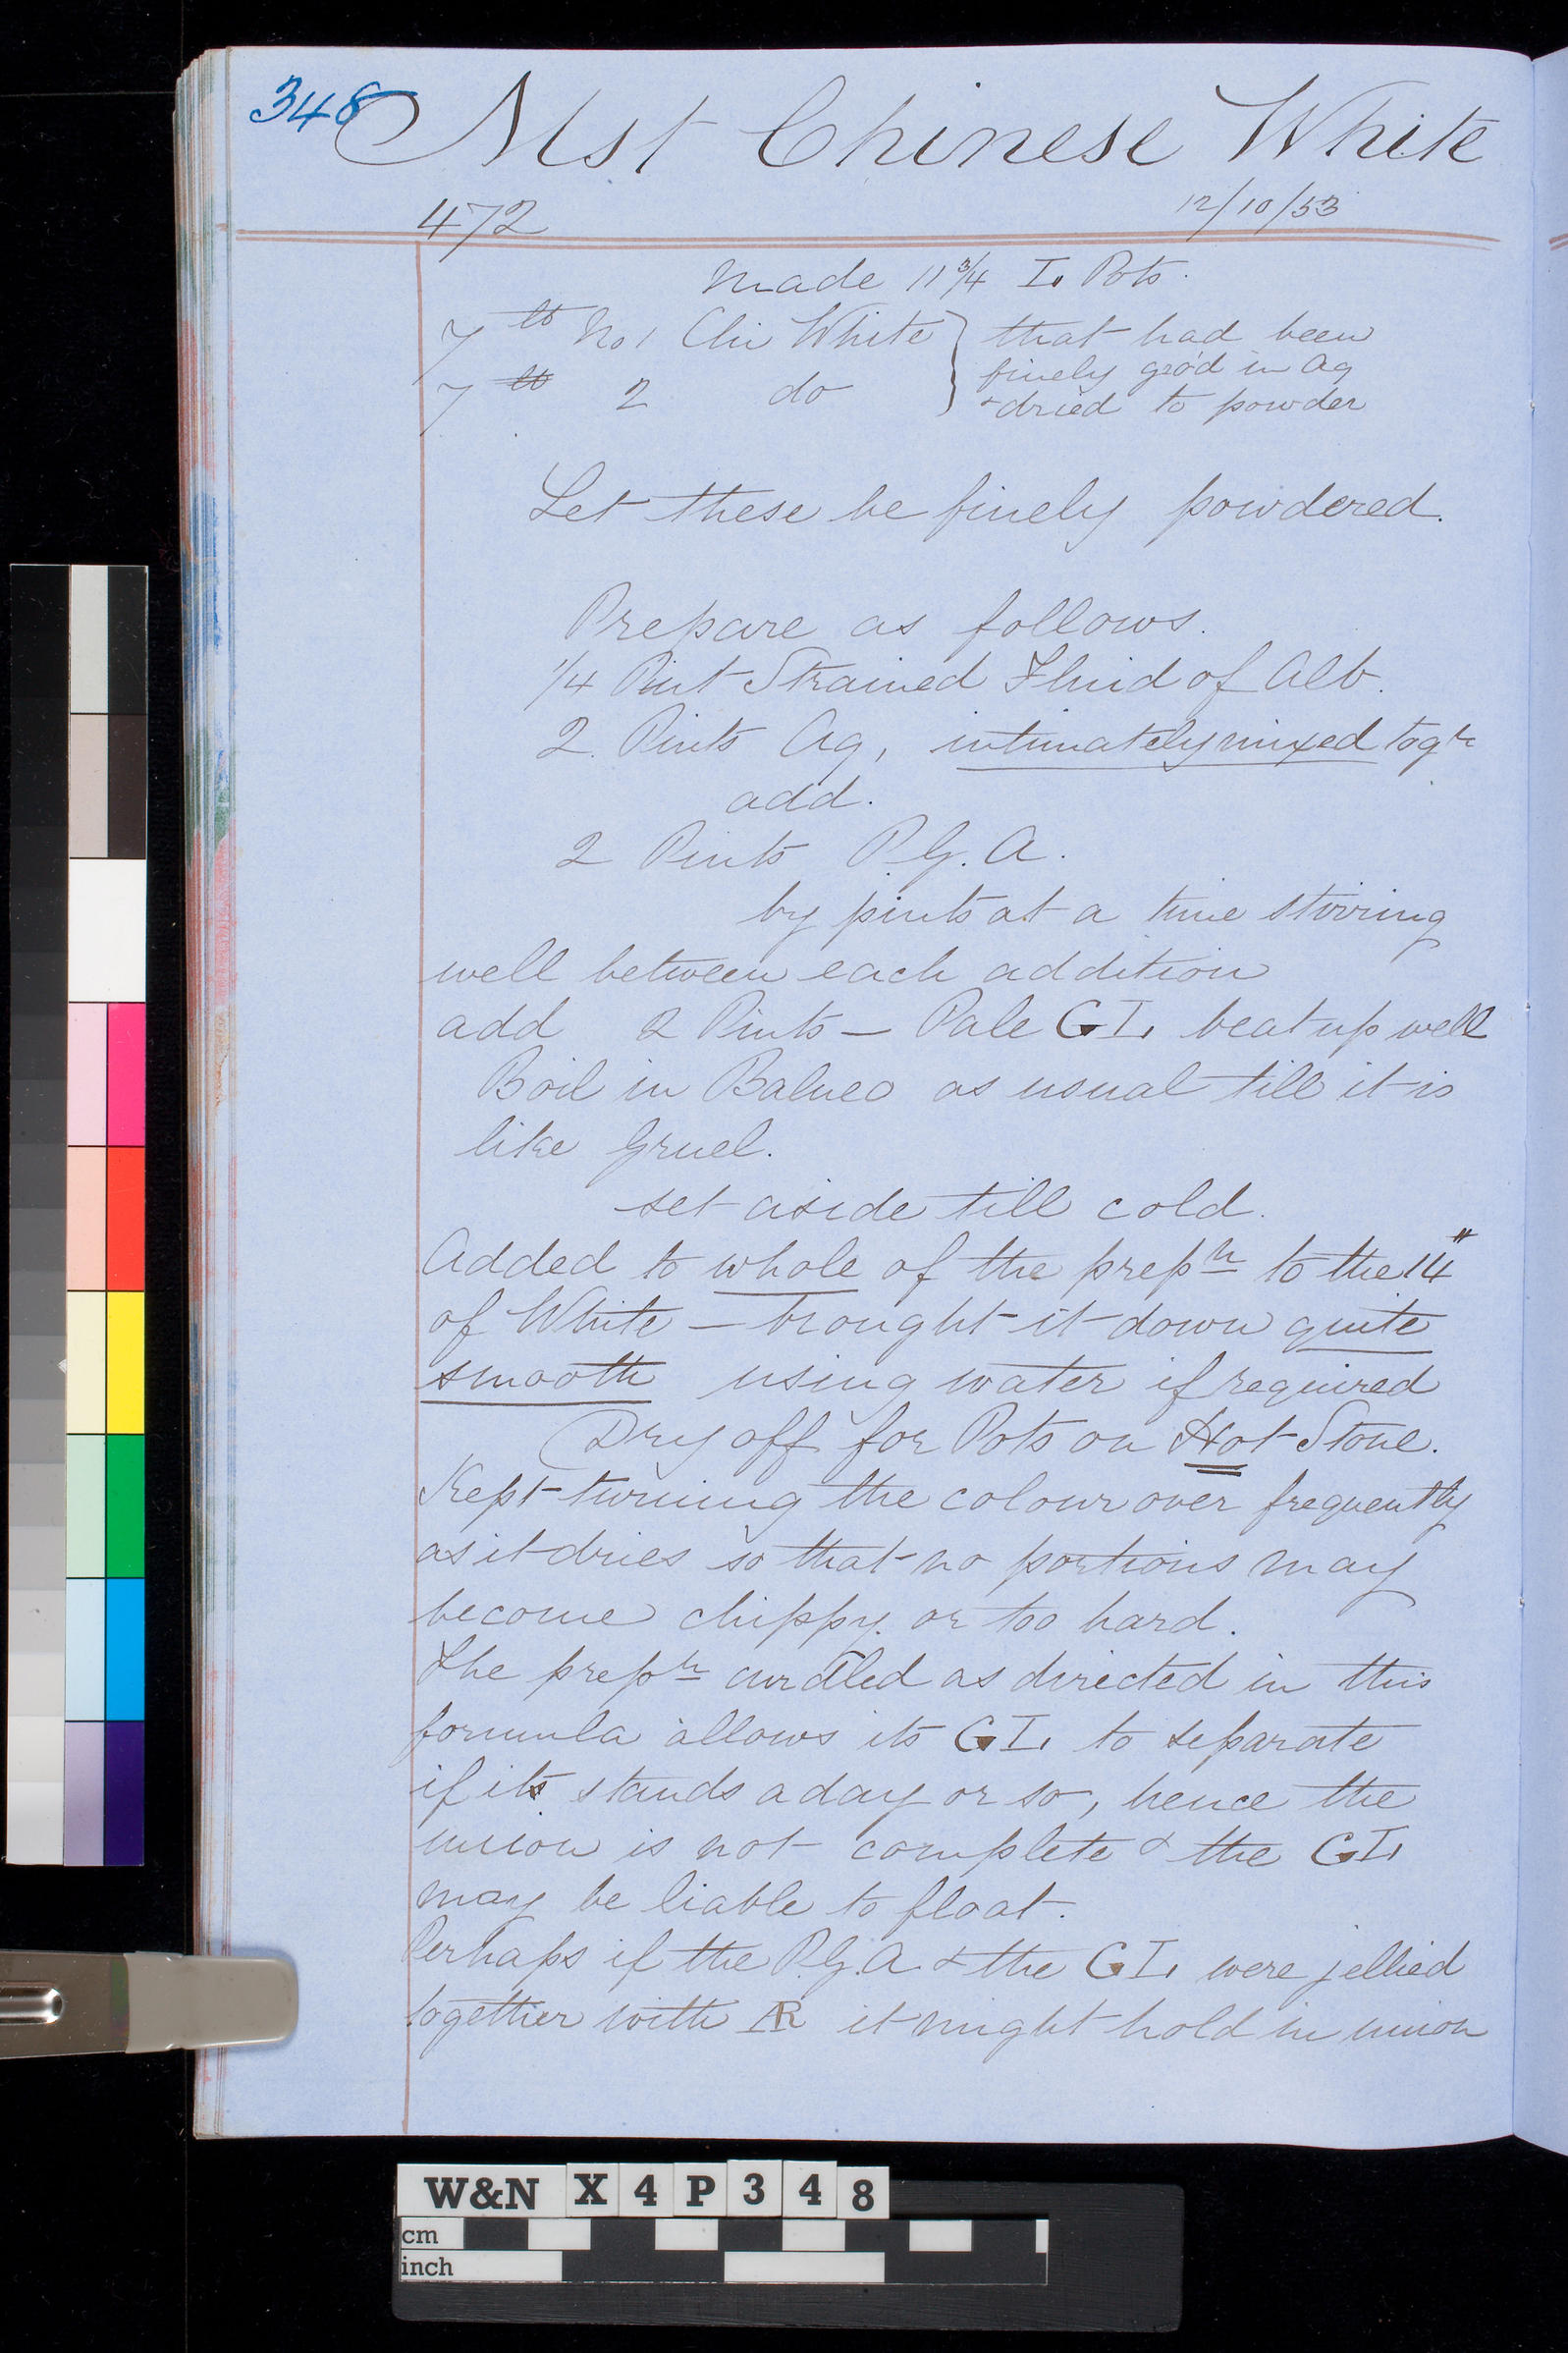 348
Mst Chinese White
472
12/10/53
Made 11 3/4 I. Pots.
7 lb No 1 Chi White } that had been
finely gro'd in Aq
7 lb 2 do } & dried to powder
Let these be finely powdered.
Prepare as follows.
1/4 Pint Strained Fluid of Alb.
2 Pints Aq, intimately mixed togr
add.
2 Pints P.G.A.
by pints at a time stirring
well between each addition
add 2 Pints — Pale GI. beat up well
Boil in Balneo as usual till it is
like Gruel.
set aside till cold.
Added to whole of the prepn to the 14#
of White — brought it down quite
smooth using water if required
Dry off for Pots on Hot Stone.
Kept turning the colour over frequently
as it dries so that no portions may
become chippy or too hard.
The prepn curdled as directed in this
formula allows its GI. to separate
if its stands a day or so, hence the
union is not complete & the GI.
may be liable to float.
Perhaps if the P.G.A. & the GI. were jellied
together with AR it might hold in union
W&N X 4 P 3 4 8
cm
inch